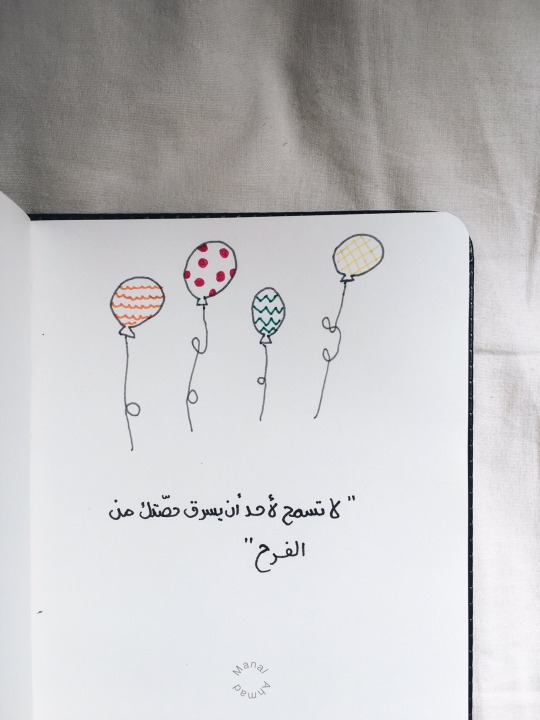 " لا تسمح لأحد أن يسرق حصّتك من
الفرح "
Manal
Ahmad